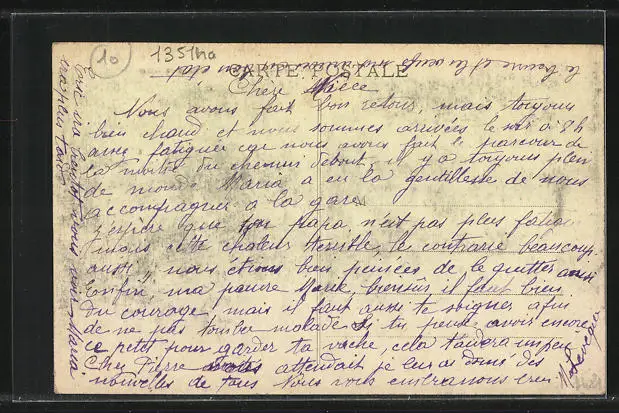 10
1351na
le beurre et les oeufs sont arrivés en bon état
CARTE POSTALE
Chère Nièce
Nous avons fait bon retour, mais toujours
bien chaud et nous sommes arrivées le soir à 8h
assez fatiguées car nous avons fait le parcour de
la moitié du chemin debout, il y a toujours plein
de monde Maria a eu la gentillesse de nous
accompagner à la gare
J'espère que ton papa n'est pas plus fatigué
mais cette chaleur terrible, le contrarie beaucoup
aussi, nous étions bien peinées de le quitter aussi
Enfin, ma pauvre Marie, biensûr il faut bien
du courage mais il faut aussi te soigner afin
de ne pas tomber malade Si tu peux avoir encore
ce petit pour garder ta vache, cela t'aidera un peu
Chez Pierre attendait je leur ai donné des
nouvelles de tous Nous vous embrassons bien
Ecris ira bientôt vous voir Maria
ira plus tard